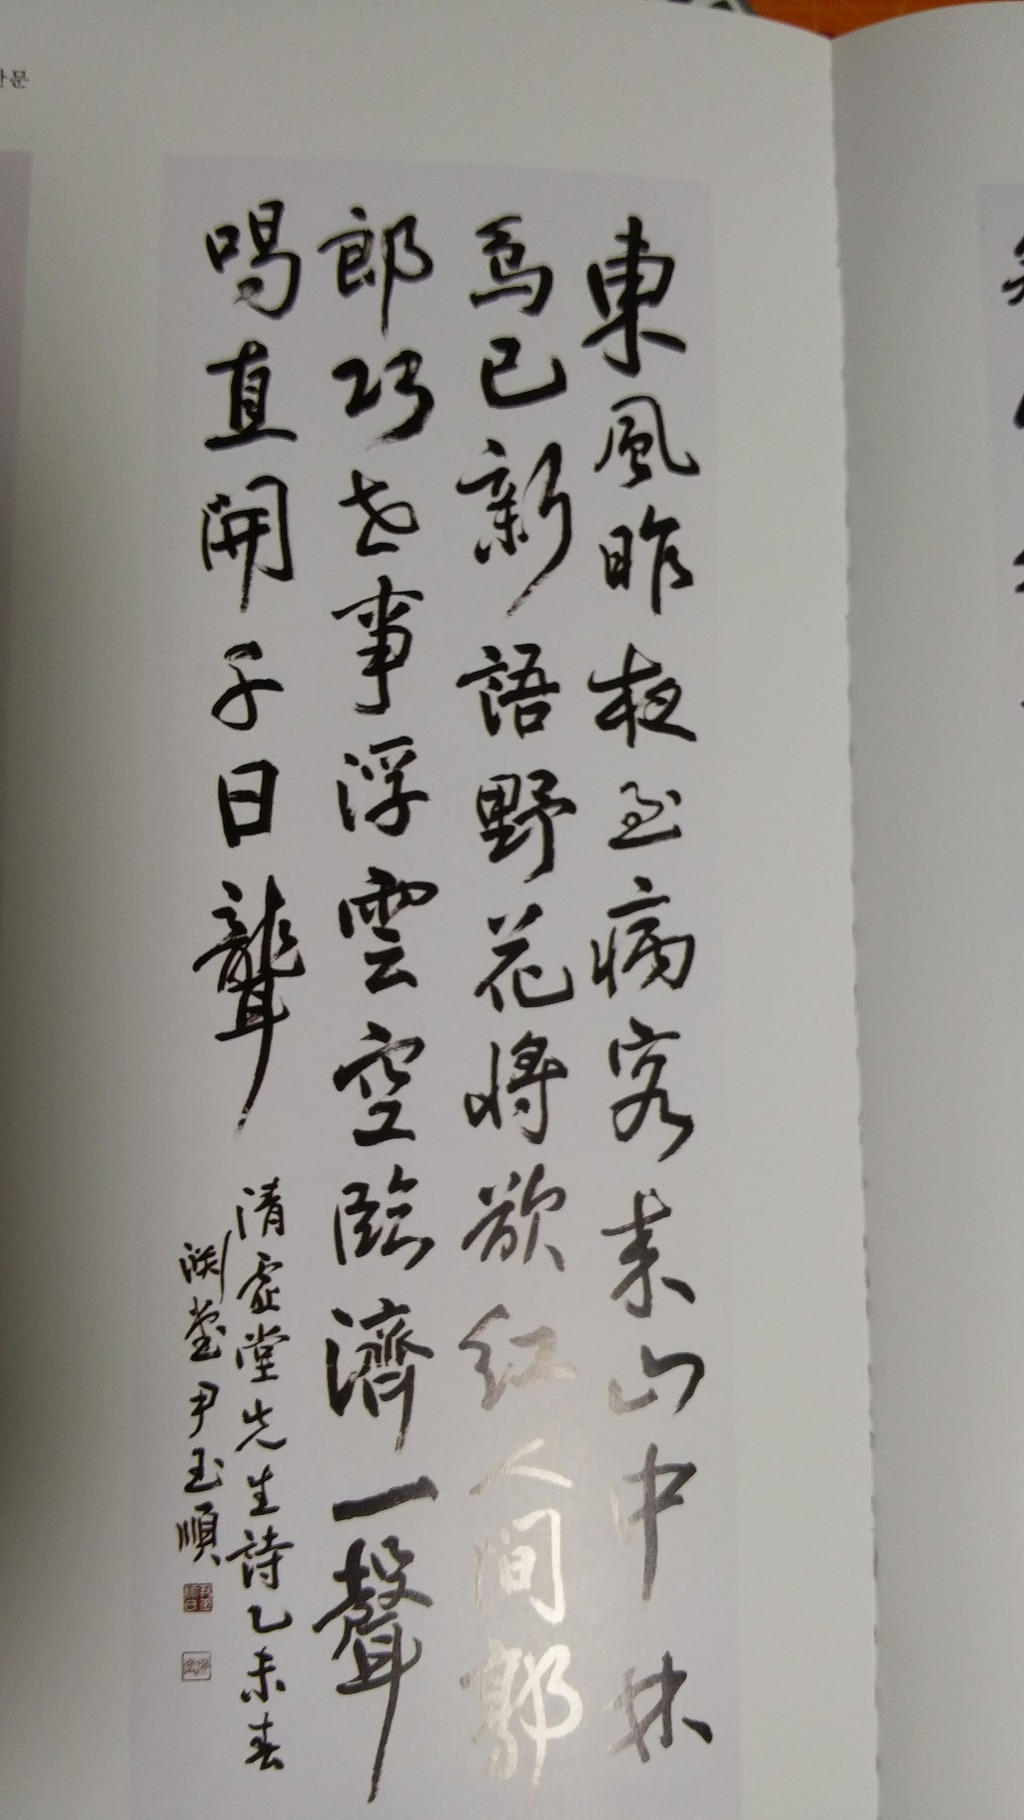 문
東風昨夜至病客來山中林
鳥已新語野花將欲紅人間郭
郎巧世事浮雲空臨濟一聲
喝直開千日聾
清虛堂先生詩乙未春
堂尹玉順